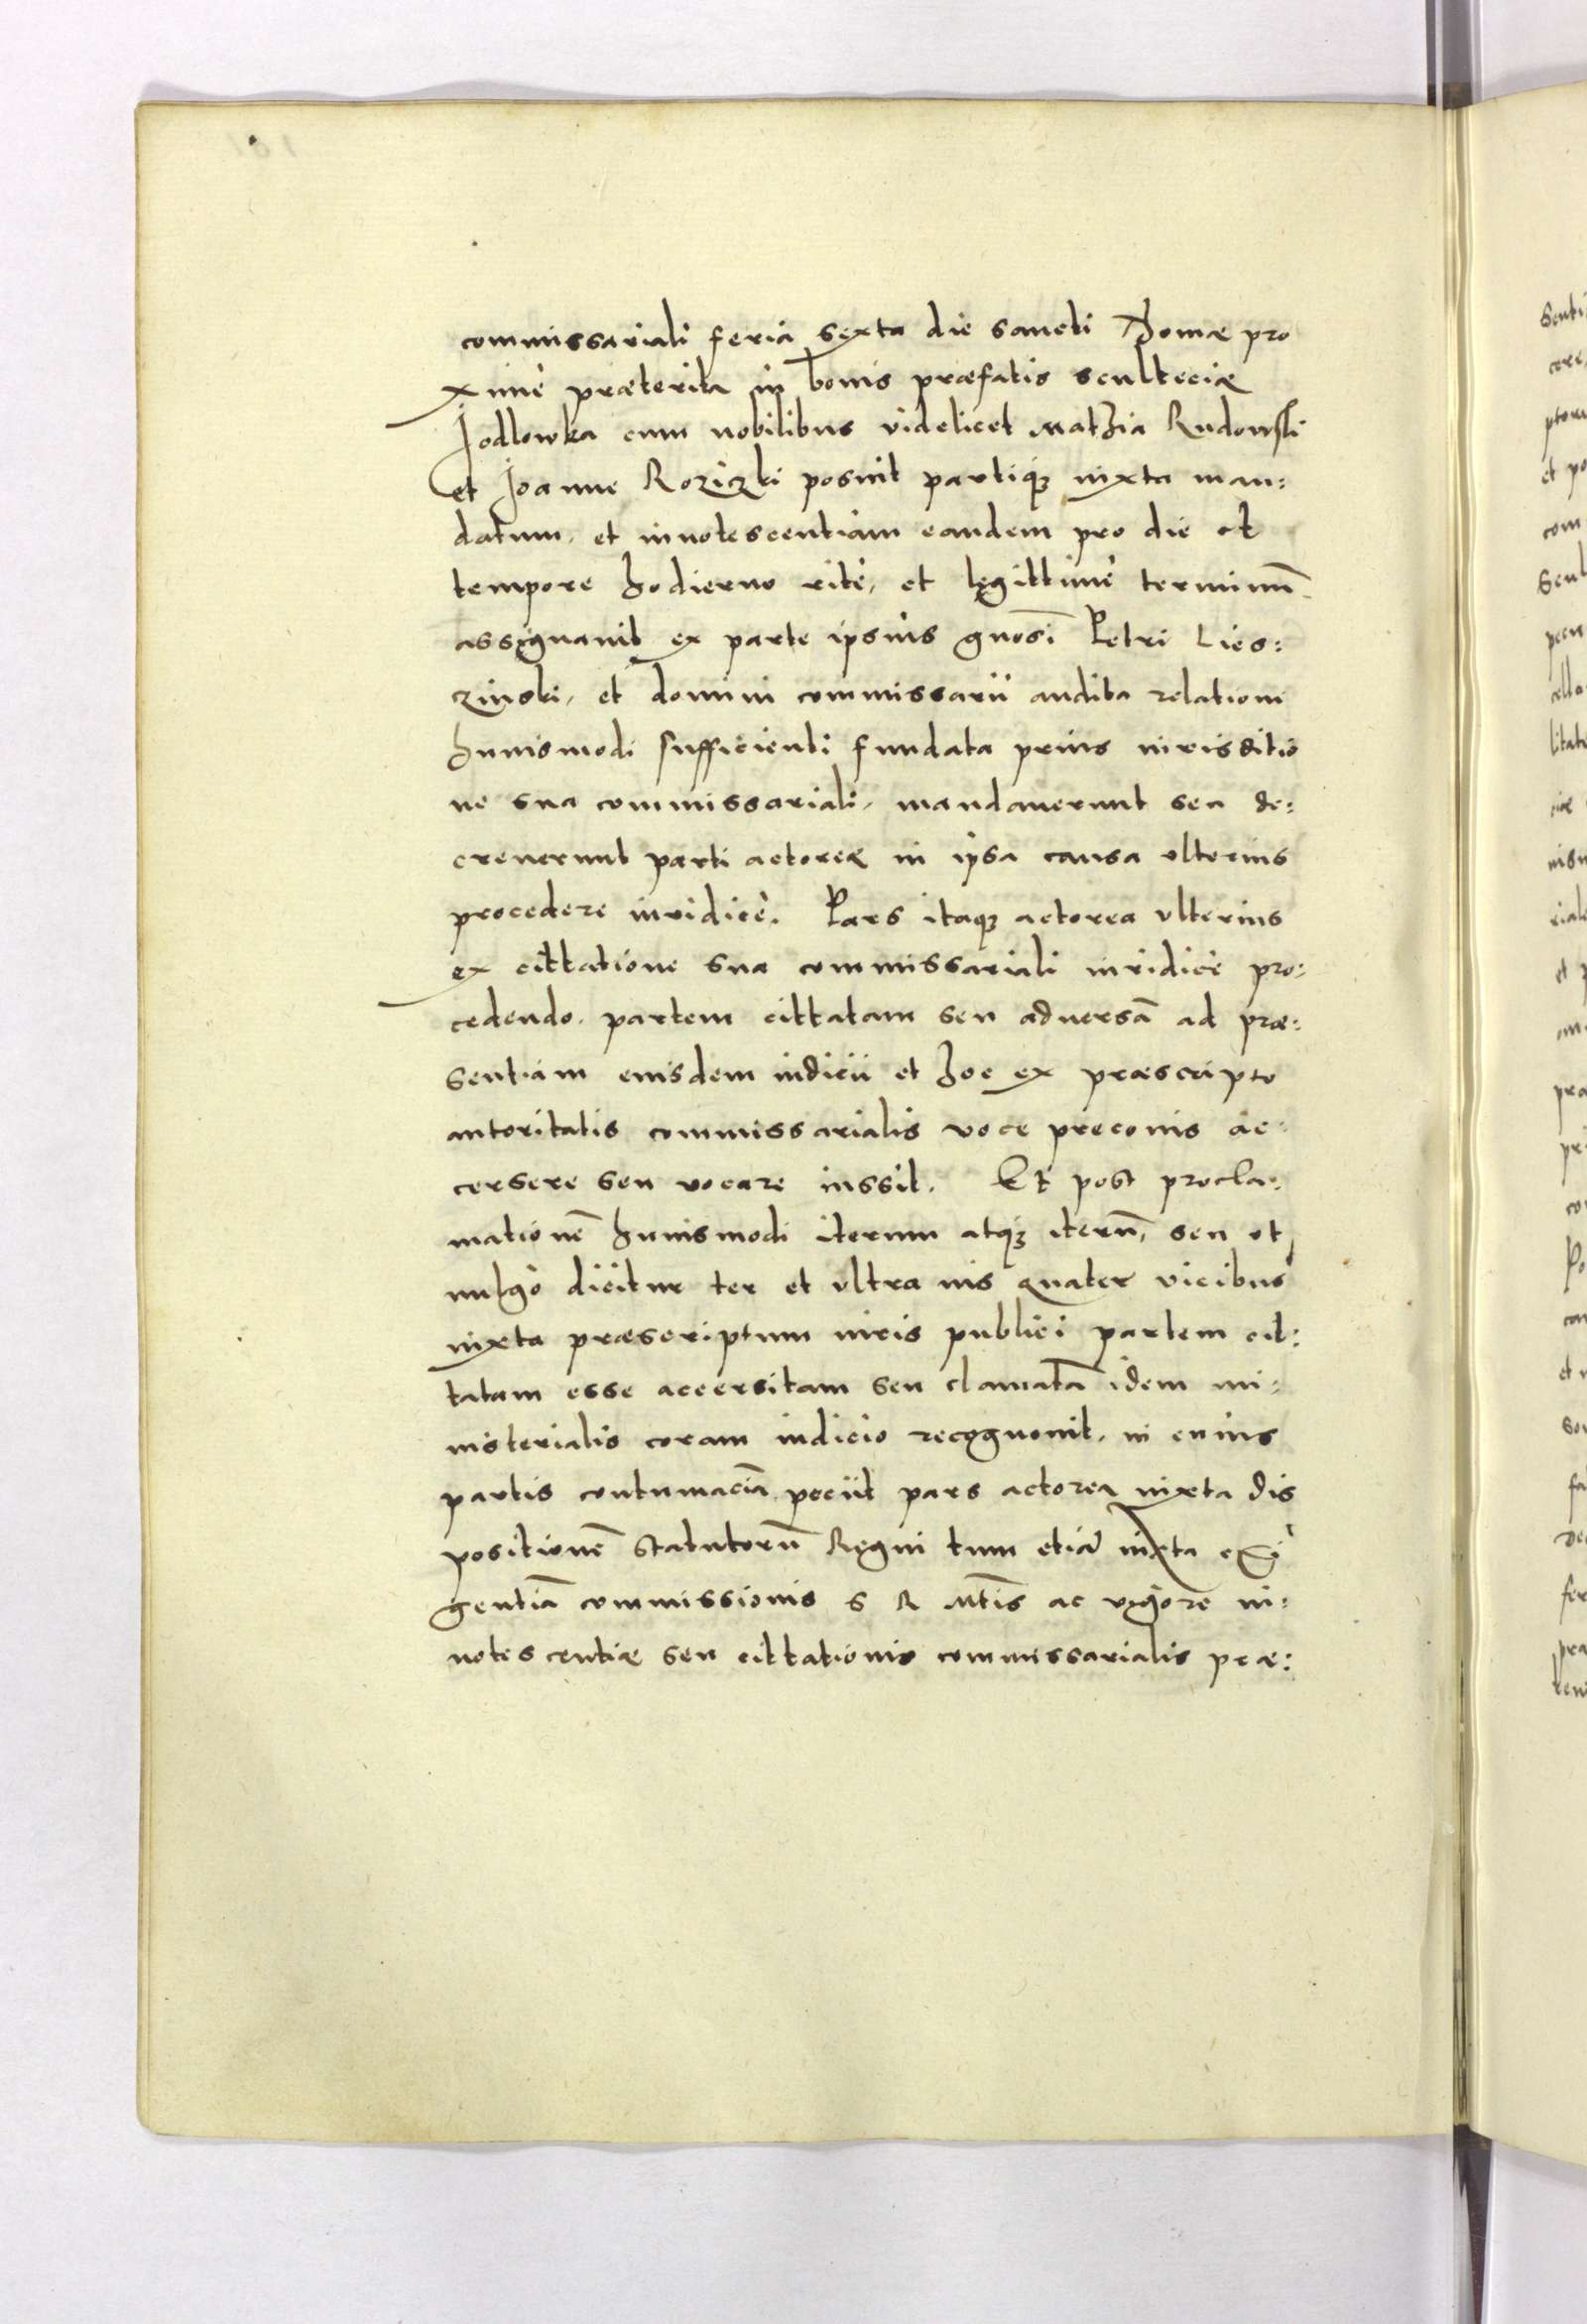 commissariali feria sexta die sancti Thomæ pro
ximè præterita in bonis præfatis sculteciæ
Jodlowka cum nobilibus videlicet Mathia Rudowski
et Joanne Roziczki posuit partiq; iuxta man:
datum, et innotescentiam eandem pro die et
tempore hodierno ritè, et legittimè terminũ
assignauit ex parte ipsius gnosi Petri Lies:
czinski, et domini commissarii audita relationi
huiusmodi sufficienti fundata prius iurisditio
ne sua commissariali, mandauerunt seu de:
creuerunt parti actoreæ in ipsa causa vlterius
procedere iuridicè. Pars itaq; actorea vlterius
ex cittatione sua commissariali iuridicè pro:
cedendo, partem cittatam seu aduersã ad præ:
sentiam eiusdem iudicii et hoc ex præscripto
autoritatis commissarialis voce preconis ac:
cersere seu vocare iussit. Et post procla:
mationẽ huiusmodi iterum atq; iterũ, seu vt
uulgò dicitur ter et vltra uis quater vicibus
iuxta præscriptum iuris publici partem cit:
tatam esse accersitam seu clamatã idem mi:
nisterialis coram iudicio recognouit, in cuius
partis contumaciã peciit pars actorea iuxta dis
positionẽ statutorũ Regni tum etiã iuxta exi
gentiã commissionis S R Mtis ac vigore in:
notescentiæ seu cittationis commissarialis præ: